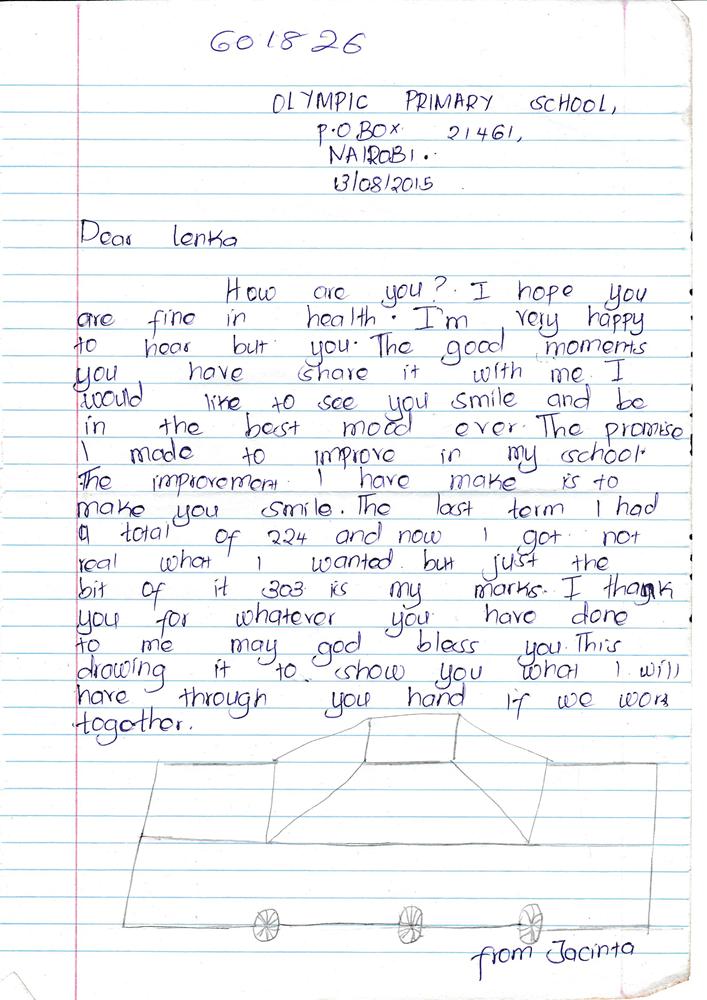 601826
OLYMPIC PRIMARY SCHOOL,
P.O BOX 21461,
NAIROBI.
13/08/2015
Dear lenka
How are you? I hope you
are fine in health. I'm very happy
to hear but you. The good moments
you have share it with me. I
would like to see you smile and be
in the best mood ever. The promise
I made to improve in my school.
The improvement I have make is to
make you smile. The last term I had
a total of 224 and now I got not
real what I wanted but just the
bit of it 303 is my marks. I thank
you for whatever you have done
to me may god bless you. This
drawing it to show you what I will
have through you hand if we work
together.
from Jacinta